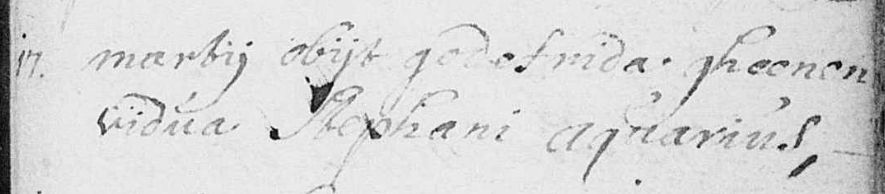 17. martij obijt godefrida gheenen
vidua Stephani aquarius,